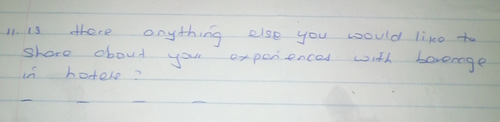 11. is there anything else you would like to
share about your experiences with baverage
in hotels?
_ _ _ _